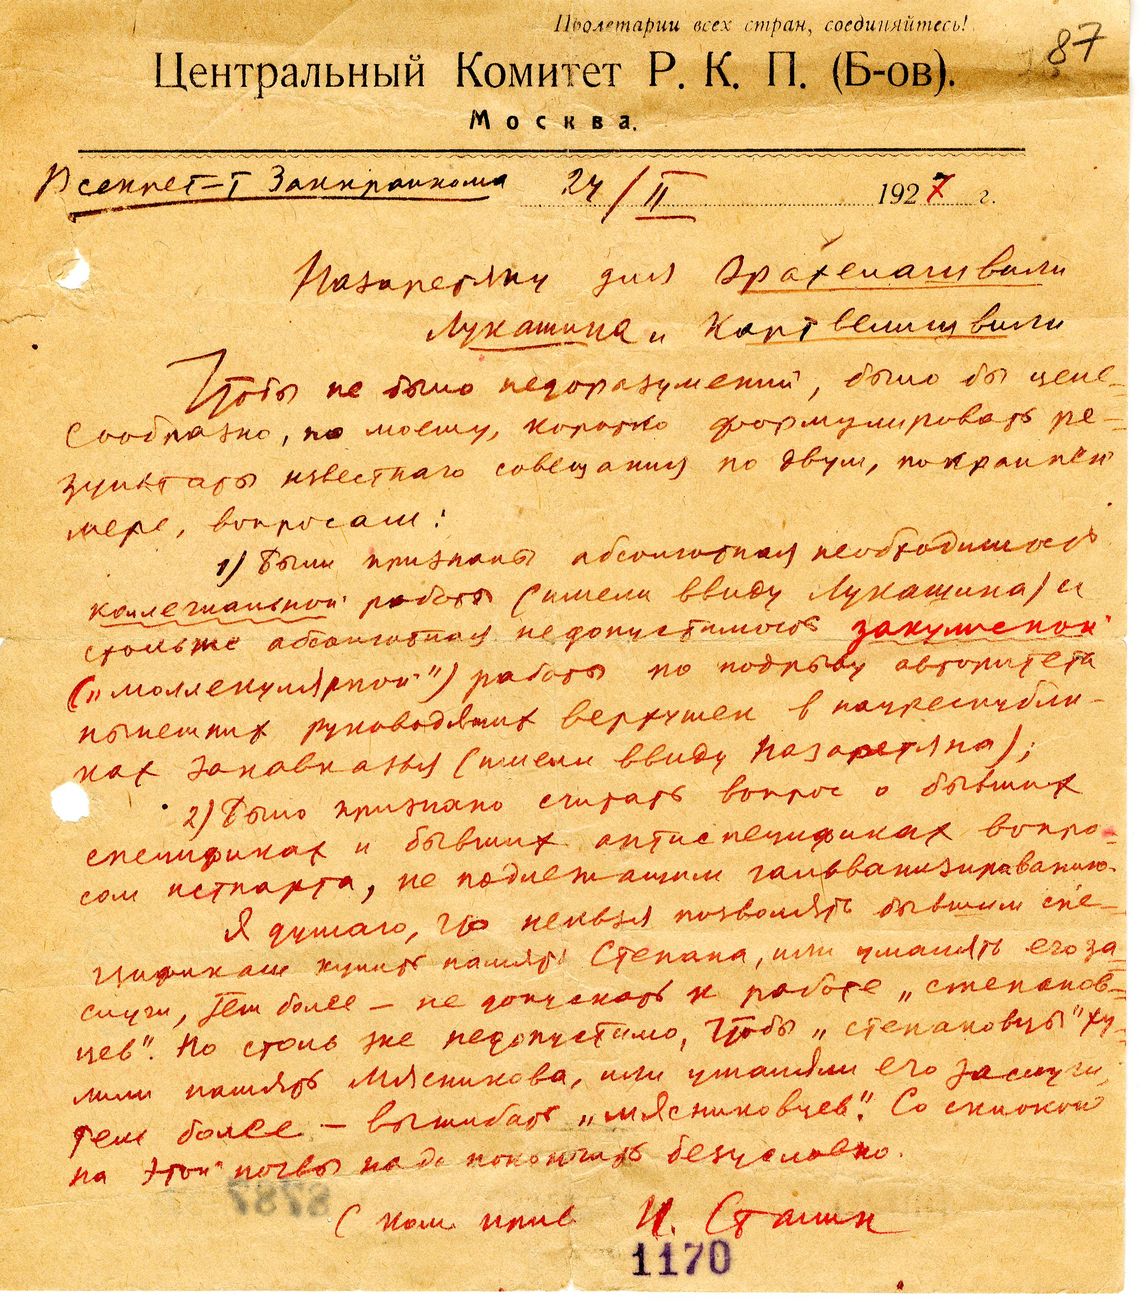 Пролетарии всех стран, соединяйтесь!
87
Центральный Комитет Р. К. П. (Б-ов).
Москва.
В секрет-т Заккрайкома 24/II 1927 г.
Назаретяну для Орахелашвили
Лукашина и Картвелишвили
Чтобы не было недоразумений, было бы целе-
сообразно, по моему, коротко формулировать ре-
зультаты известного совещания по двум, по крайней
мере, вопросам:
1) Были признаны абсолютная необходимость
коллегиальной работы (имели ввиду Лукашина) и
столь же абсолютная недопустимость закулисной
(„моллекулярной") работы по подрыву авторитета
нынешних руководящих верхушек в нацреспубли-
ках Закавказья (имели ввиду Назаретяна);
2) Было признано считать вопрос о бывших
спецификах и бывших антиспецификах вопро-
сом истпарта, не подлежащим гальванизированию.
Я думаю, что нельзя позволять бывшим спе-
цификам хулить память Степана, или умалять его за-
слуги, тем более — не допускать к работе „степанов-
цев". Но столь же недопустимо, чтобы „степановцы" ху-
лили память Мясникова, или умаляли его заслуги,
тем более — вышибать „мясниковцев". Со склокой
на этой почве надо покончить безусловно.
7878
С ком. прив. И. Сталин
1170